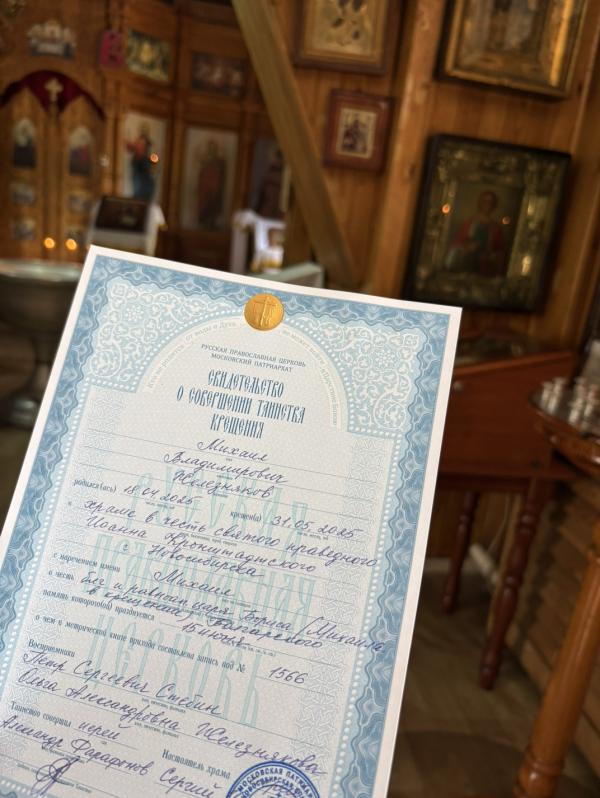 РУССКАЯ ПРАВОСЛАВНАЯ ЦЕРКОВЬ
МОСКОВСКИЙ ПАТРИАРХАТ
СВИДЕТЕЛЬСТВО
О СОВЕРШЕНИИ ТАИНСТВА
КРЕЩЕНИЯ
Михаил
Владимирович
Железняков
родился(ась) 18.04.2025 крещен(а) 31.05.2025
в Храме в честь святого праведного
Иоанна Кронштадтского
г. Новосибирска
с наречением имени Михаил
в честь блг и равноап царя Бориса (Михаила
в крещении) Болгарского
память которого(ой) празднуется 15 июня
о чем в метрической книге прихода составлена запись под № 1566
Восприемники
Петр Сергеевич Стебин
Ольга Александровна Железнякова
Таинство совершил иерей
Александр Фарафонов
Настоятель храма
Сергий
МОСКОВСКАЯ ПАТРИАРХ
НОВОСИБИРСКАЯ